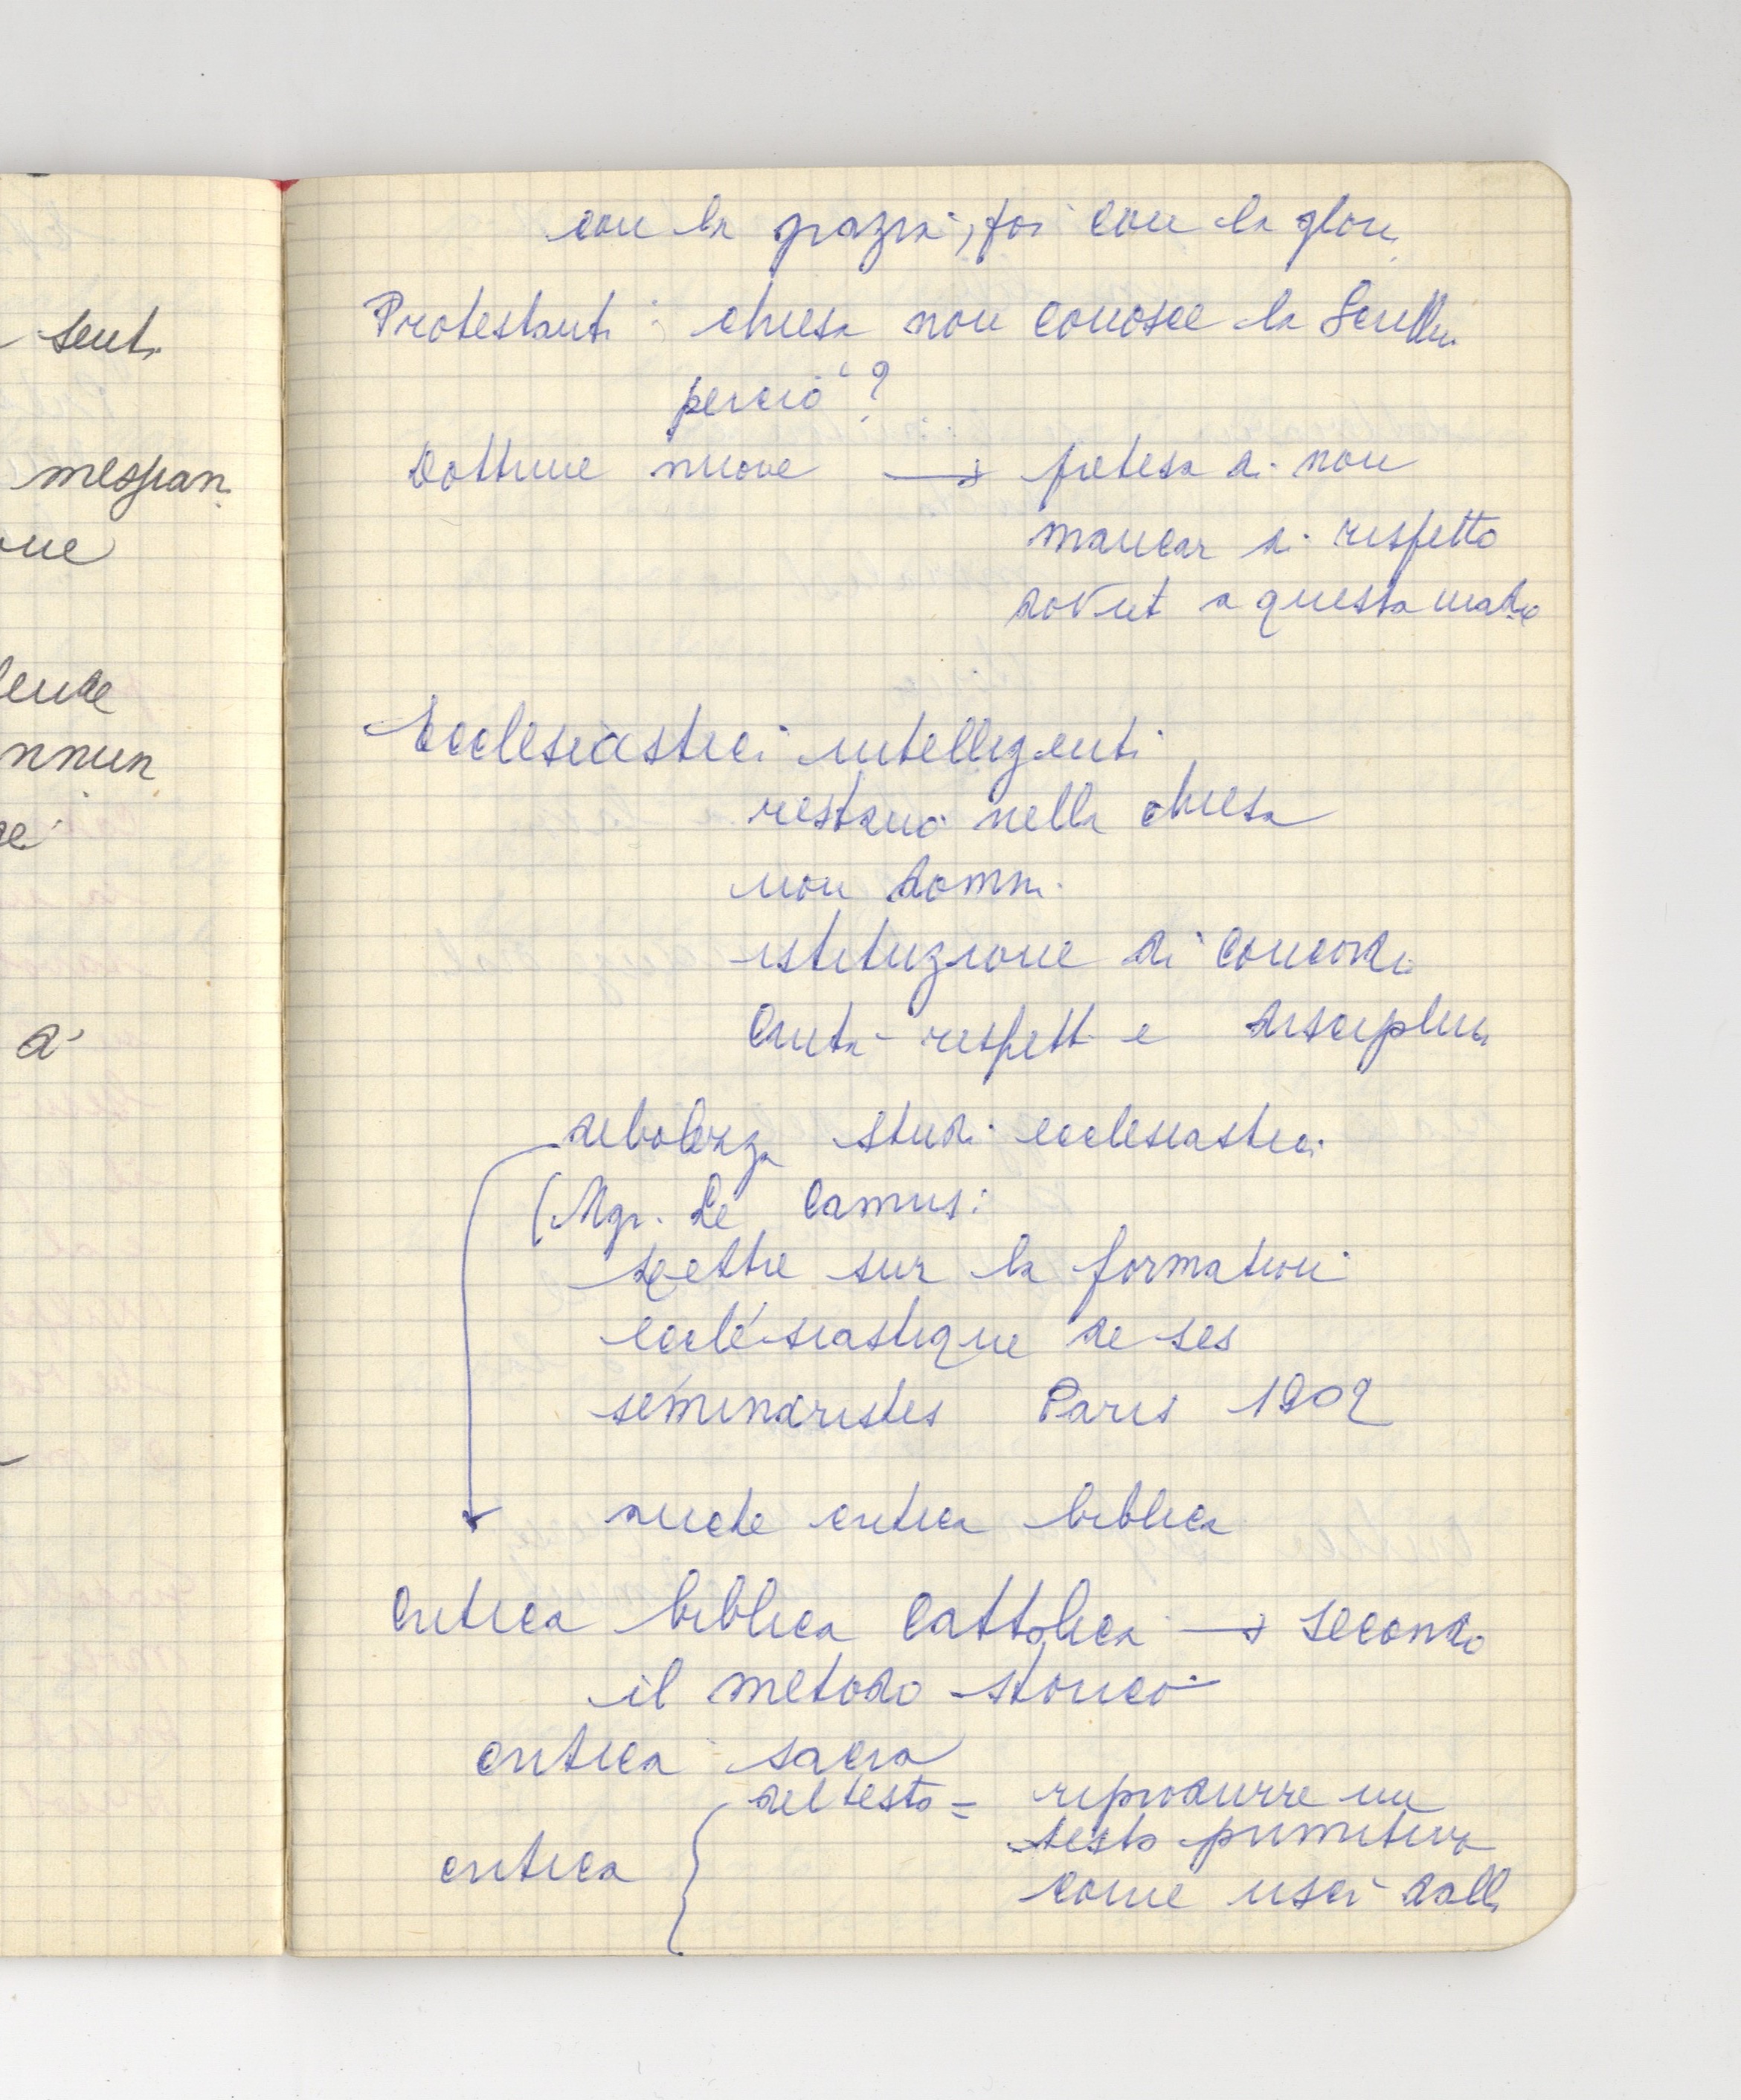 sent.
messian.
one
lende
nnun
dei
di
con la grazia, poi con la glori.
Protestanti : chiesa non conosce la Scrittu.
perciò ?
Dottrine nuove → pretesa di non
mancar di rispetto
dovut a questa madre
Ecclesiastici intelligenti
restano nella chiesa
non domin.
istituzione di concordi
Carità - rispett. e disciplin.
debolezza studi ecclesiastici
(Mgr. Le Camus:
Lettre sur la formation
ecclésiastique de ses
séminaristes Paris 1902
anche critica biblica
Critica biblica Cattolica → secondo
il metodo storico
critica sacra
del testo = riprodurre un
testo primitivo
critica {
come uscì dall.